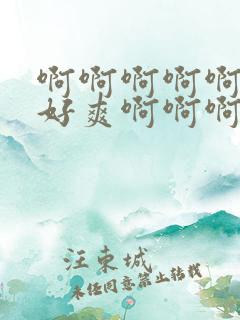 啊啊啊啊啊
好爽啊啊啊
汪东城
未经同意禁止转载